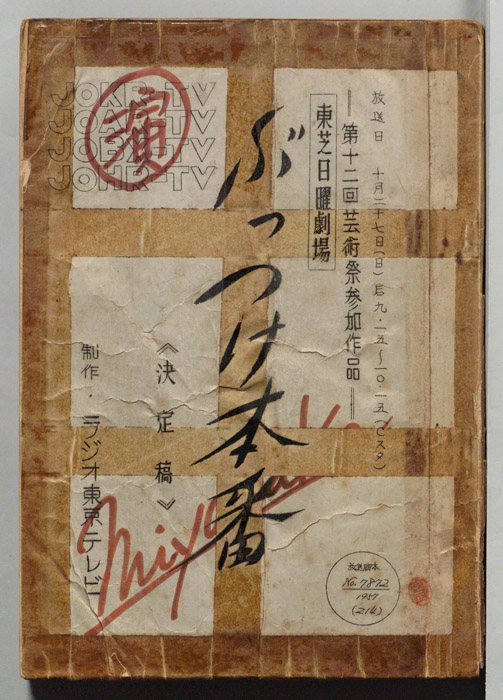 放送日 十月二十七日(日)后九・一五〜一〇・一五(Cスタ)
第十二回芸術祭参加作品
東芝日曜劇場
ぶっつけ本番
《決定稿》
制作・ラジオ東京テレビ
JOKR-TV
JOKR-TV
JOKR-TV
JOKR-TV
放送脚本
No.7872
1957
(214)